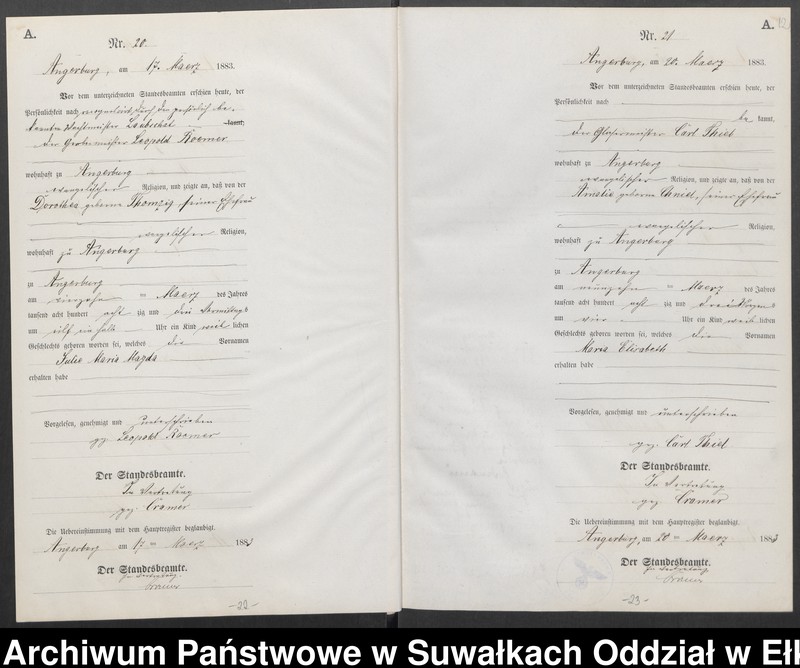 A.
Nr. 20.
Angerburg, am 17. Maerz 1883.
Vor dem unterzeichneten Standesbeamten erschien heute, der
Persönlichkeit nach, durch den persönlich be-
kannten Wachtmeister kannt,
der Leopold Roemer
wohnhaft zu Angerburg
evangelischer Religion, und zeigte an, daß von der
Dorothea geborne Thomzig, seiner Ehefrau
evangelischer Religion,
wohnhaft zu Angerburg
zu Angerburg
am vierzehn ten Maerz des Jahres
tausend acht hundert acht zig und drei Vormittags
um elf ein halb Uhr ein Kind weib lichen
Geschlechts geboren worden sei, welches die Vornamen
Julie Maria Magda
erhalten habe
Vorgelesen, genehmigt und unterschrieben
gez. Leopold Roemer
Der Standesbeamte.
In Vertretung
gez. Cramer
Die Uebereinstimmung mit dem Hauptregister beglaubigt.
Angerburg am 17ten Maerz 1883
Der Standesbeamte.
In Vertretung.
Cramer
-22-
A.
Nr. 21
Angerburg, am 20. Maerz 1883.
Vor dem unterzeichneten Standesbeamten erschien heute, der
Persönlichkeit nach
be kannt,
der Glasermeister Carl Thiel
wohnhaft zu Angerburg
evangelischer Religion, und zeigte an, daß von der
Amalie geborne seiner Ehefrau
evangelischer Religion,
wohnhaft zu Angerburg
zu Angerburg
am neunzehn ten Maerz des Jahres
tausend acht hundert acht zig und drei Morgens
um vier Uhr ein Kind weib lichen
Geschlechts geboren worden sei, welches die Vornamen
Maria Elisabeth
erhalten habe
Vorgelesen, genehmigt und unterschrieben
gez. Carl Thiel
Der Standesbeamte.
In Vertretung
gez. Cramer
Die Uebereinstimmung mit dem Hauptregister beglaubigt.
Angerburg, am 20ten Maerz 1883
Der Standesbeamte.
In Vertretung
Cramer
-23-
Archiwum Państwowe w Suwałkach Oddział w Eł